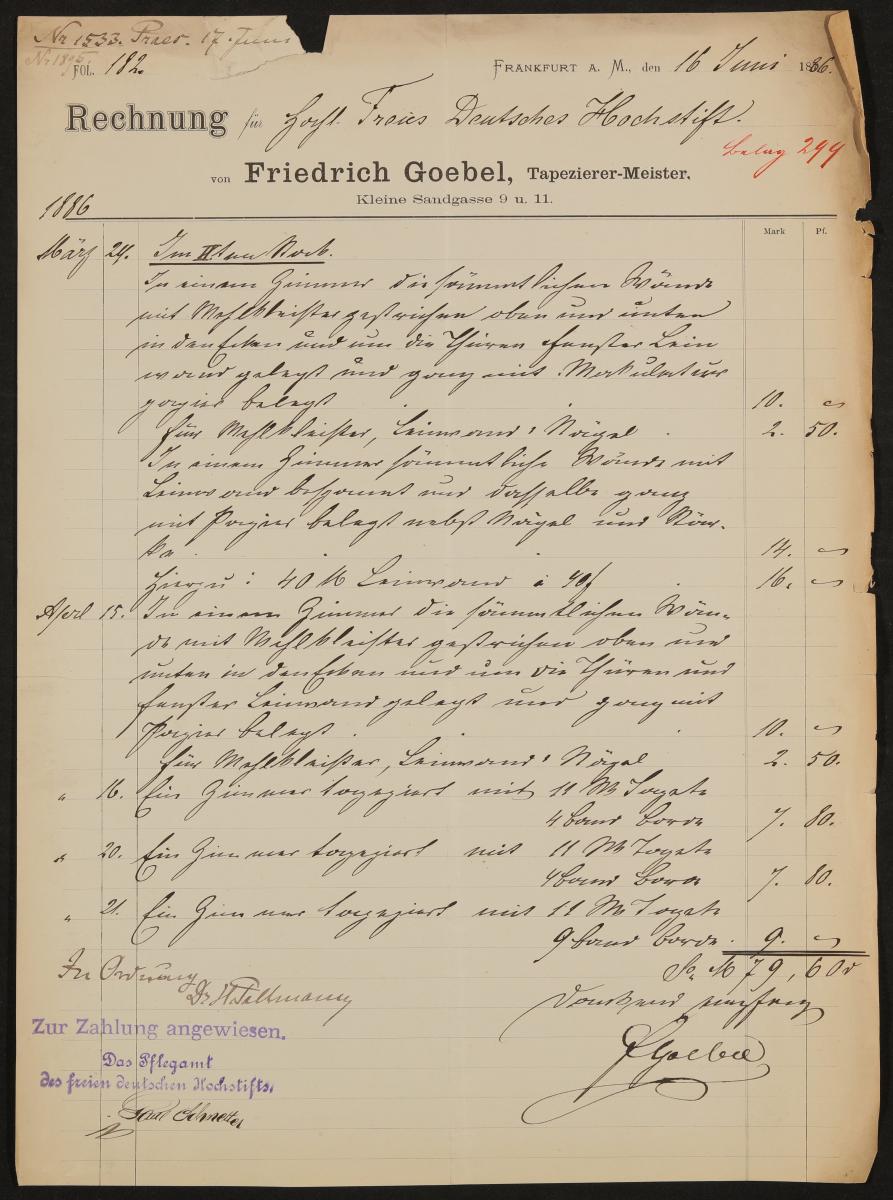 Nr 1533. Praes. 17. Juni
Nr. 18
FOL. 182.
FRANKFURT A. M., den 16 Juni 1886.
Rechnung für Hochl. Freies Deutsches Hochstift.
Belag 299
von Friedrich Goebel, Tapezierer-Meister.
Kleine Sandgasse 9 u. 11.
1886
Mark Pf.
März 24. Im II ten Stock.
In einem Zimmer die sämmtlichen Wände
mit Mehlkleister gestrichen oben und unten
in den Ecken und um die Thüren Fenster Lein
wand gelegt und ganz mit Makulatur
papier belegt 10. –
für Mehlkleister, Leinwand & Nägel 2. 50.
In einem Zimmer sämmtliche Wände mit
Leinwand bespannt und dasselbe ganz
mit Papier belegt nebst Nägel und Stär-
ke. 14. –
Hierzu: 40 M Leinwand à 40 ₰ 16. –
April 15. In einem Zimmer die sämmtlichen Wän-
de mit Mehlkleister gestrichen oben und
unten in den Ecken und um die Thüren und
Fenster Leinwand gelegt und ganz mit
Papier belegt 10. –
für Mehlkleister, Leinwand & Nägel 2. 50.
" 16. Ein Zimmer tapeziert mit 11 St Tapete
4 Band Borde 7. 80.
" 20. Ein Zimmer tapeziert mit 11 St Tapete
4 Band Borde 7. 80.
" 21. Ein Zimmer tapeziert mit 11 St Tapete
9 Band Borde. 9. –
Sa. M 79,60 ₰
In Ordnung
Dr. H Pallmann
Dankend empfang
Zur Zahlung angewiesen.
F Goebel
Das Pflegamt
des freien deutschen Hochstifts.